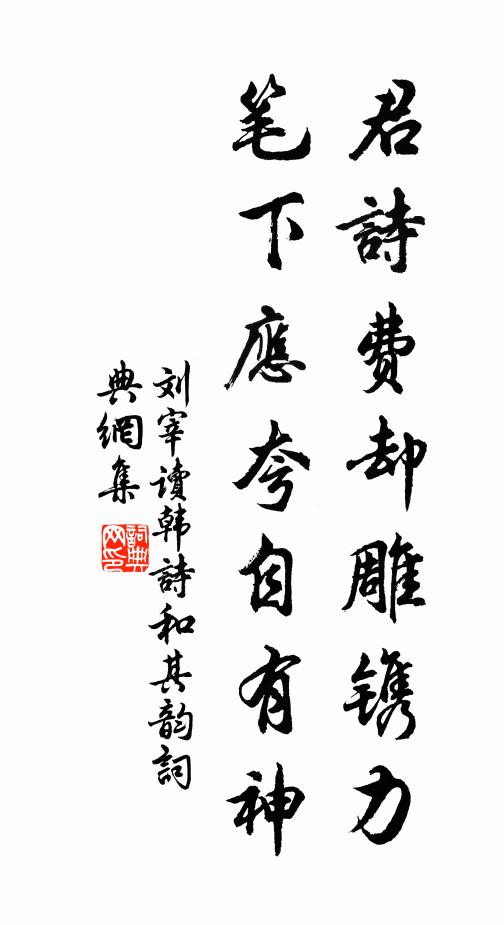 君詩费却雕镌力
笔下應夸自有神
刘宰读韩詩和其韵詞
典網集
詞典网印